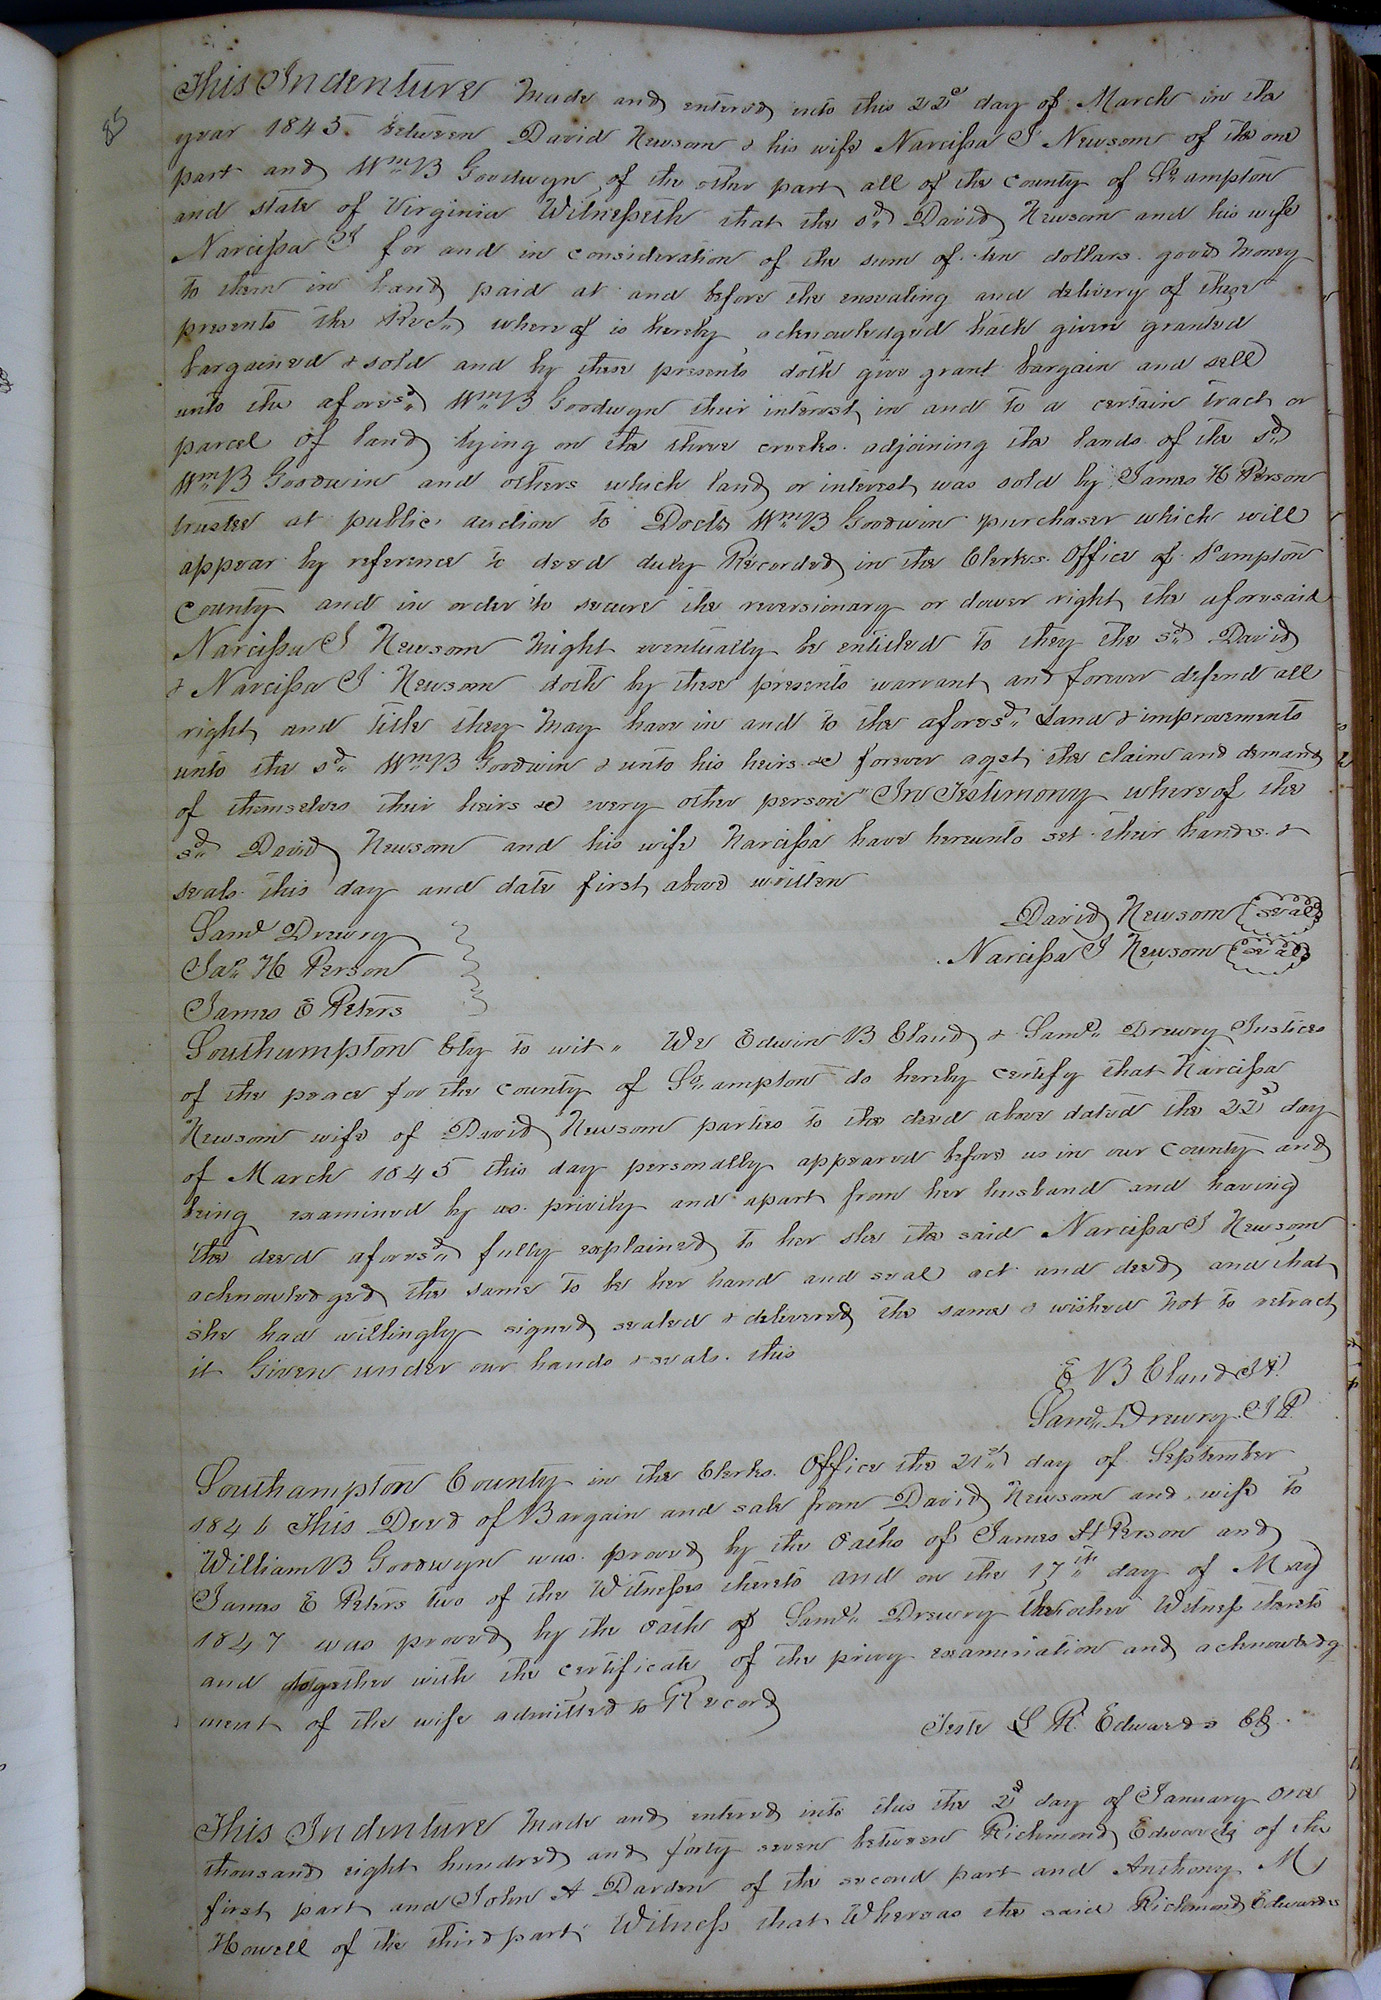 85
This Indenture Made and entered into this 22d day of March in the
year 1845. between David Newsom & his wife Narcissa J Newsom of the one
part and Wm B Goodwyn of the other part all of the county of So.ampton
and state of Virginia Witnesseth that the sd David Newsom and his wife
Narcissa J for and in consideration of the sum of ten dollars good Money
to them in hand paid at and before the ensealing and delivery of these
presents the Rect. whereof is hereby acknowledged hath given granted
bargained & sold and by these presents doth give grant bargain and sell
unto the aforesd Wm B Goodwyn their interest in and to a certain tract or
parcel of land lying on the three creeks adjoining the lands of the sd
Wm B Goodwin and others which land or interest was sold by James H Person
trustee at public auction to Doctr Wm B Goodwin purchaser which will
appear by reference to deed duly Recorded in the Clerks Office of So.ampton
County and in order to secure the reversionary or dower right the aforesaid
Narcissa J Newsom might eventually be entitled to they the sd David
& Narcissa J Newsom doth by these presents warrant and forever defend all
right and title they May have in and to the aforesd Land & improvements
unto the sd Wm B Goodwin & unto his heirs &c forever agst the claim and demand
of themselves their heirs &c every other person" In Testimony whereof the
sd David Newsom and his wife Narcissa have hereunto set their hands &
seals this day and date first above written
David Newsom (seal)
Narcissa J Newsom (seal)
Saml Drewry
Jas H Person
James E Peters
Southampton Cty to wit " We Edwin B Claud & Saml Drewry Justices
of the peace for the county of So.ampton do hereby certify that Narcissa
Newsom wife of David Newsom parties to the deed above dated the 22d day
of March 1845 this day personally appeared before us in our County and
being examined by us privily and apart from her husband and having
the deed aforesd fully explained to her she the said Narcissa J Newsom
acknowledged the same to be her hand and seal act and deed and that
she had willingly signed sealed & delivered the same & wished not to retract
it Given under our hands & seals this
E B Claud JP.
Saml Drewry JP.
Southampton County in the Clerks Office the 21st day of September
1846 This Deed of Bargain and sale from David Newsom and wife to
William B Goodwyn was proved by the Oaths of James H Person and
James E Peters two of the Witnesses thereto and on the 17th day of May
1847 was proved by the oath of Saml Drewry the other Witness thereto
and together with the certificate of the privy examination and acknowledg
ment of the wife admitted to Record
Teste L R. Edwards Clk
This Indenture Made and entered into this the 2d day of January one
thousand eight hundred and forty seven between Richmond Edwards of the
first part and John A Darden of the second part and Anthony M
Howell of the third part Witness that Whereas the said Richmond Edwards